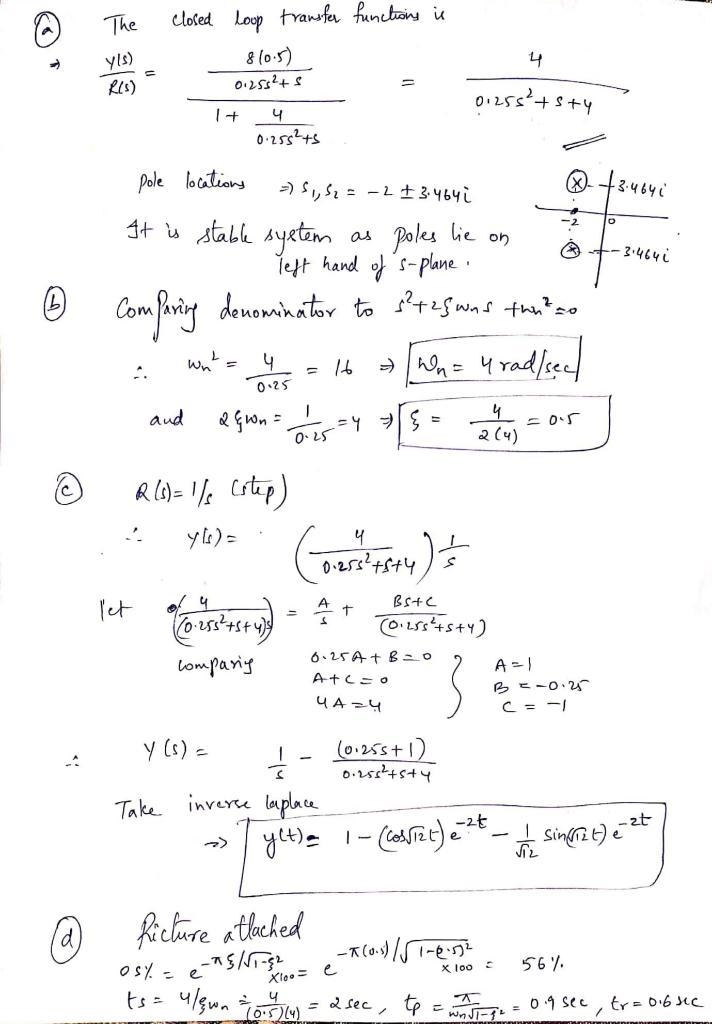 (a) The closed loop transfer functions is
⇒ Y(s)/R(s) = (8(0.5)/(0.25s²+s)) / (1 + 4/(0.25s²+s)) = 4/(0.25s²+s+4)
Pole locations ⇒ s₁,s₂ = -2 ± 3.464i
+3.464i
-2 0
-3.464i
It is stable system as poles lie on
left hand of s-plane.
(b) Comparing denominator to s²+2ξwns+wn²=0
∴ wn² = 4/0.25 = 16 ⇒ Wn = 4 rad/sec
and 2ξwn = 1/0.25 = 4 ⇒ ξ = 4/2(4) = 0.5
(c) R(s)=1/s (step)
∴ y(s) = (4/(0.25s²+s+4)) 1/s
let 4/((0.25s²+s+4)s) = A/s + (Bs+C)/(0.25s²+s+4)
comparing 0.25A+B=0
A+C=0
4A=4
A=1
B=-0.25
C=-1
∴ Y(s) = 1/s - (0.25s+1)/(0.25s²+s+4)
Take inverse laplace
⇒ y(t)= 1-(cos√12t)e^-2t - 1/√12 sin(√12t)e^-2t
(d) Picture attached
os% = e^-πξ/√1-ξ² x100 = e^-π(0.5)/√1-(0.5)² x100 = 56%.
ts = 4/ξwn = 4/(0.5)(4) = 2sec, tp = π/wn√1-ξ² = 0.9 sec, tr=0.6sec